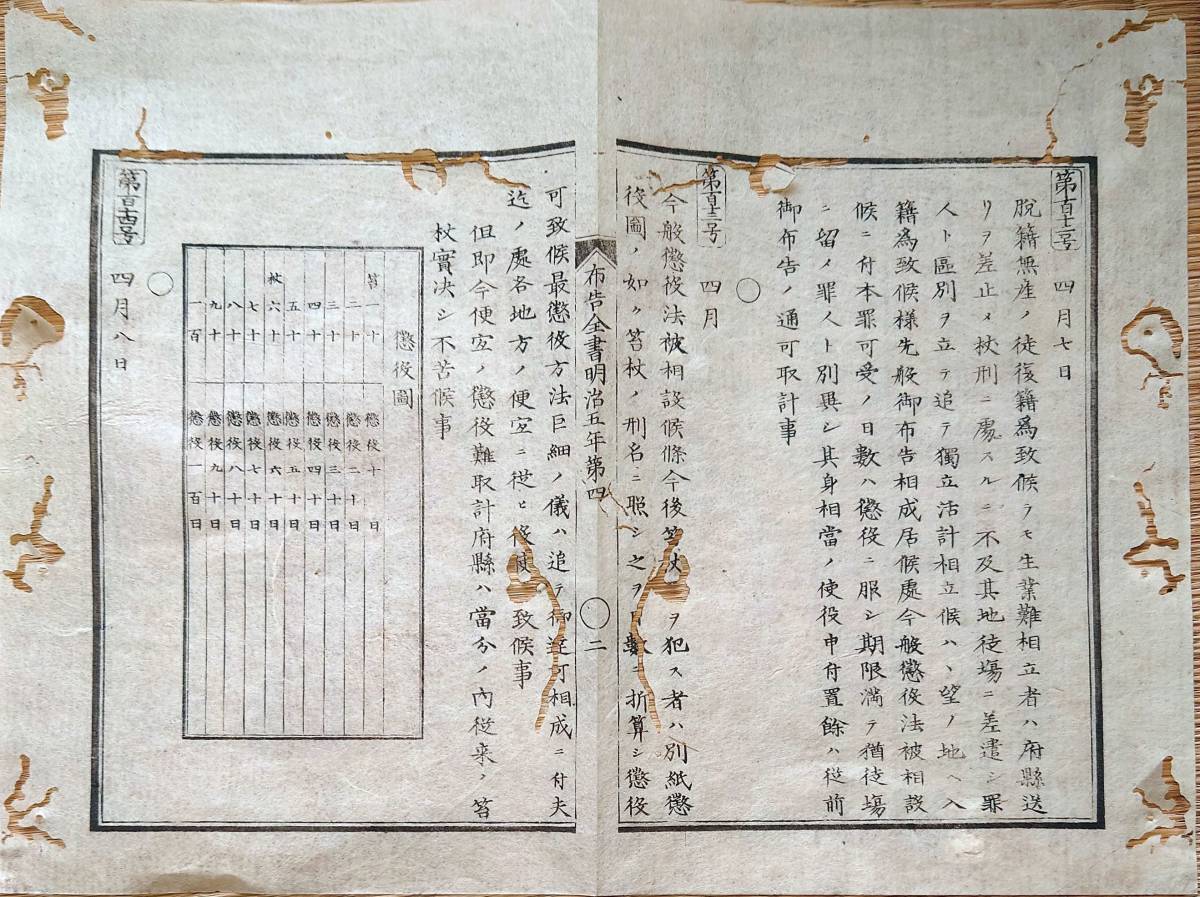 第百十二号
四月七日
脱籍無産ノ徒復籍為致候ラモ生業難相立者ハ府縣送
リヲ差止メ杖刑ニ處スルニ不及其地徒場ニ差遣シ罪
人ト區別ヲ立テ追テ獨立活計相立候ハヽ望ノ地ヘ入
籍為致候様先般御布告相成居候處今般懲役法被相設
候ニ付本罪可受ノ日數ハ懲役ニ服シ期限満テ猶徒場
ニ留メ罪人ト別異シ其身相當ノ使役申付置餘ハ従前
御布告ノ通可取計事
○
第百十三号
四月
今般懲役法被相設候條今後笞杖ヲ犯ス者ハ別紙懲
役圖ノ如ク笞杖ノ刑名ニ照シ之ヲ日數ニ折算シ懲役
布告全書明治五年第四
○二
可致候最懲役方法巨細ノ儀ハ追テ御達可相成ニ付夫
迄ノ處各地方ノ便宜ニ從ヒ役使致候事
但即今便宜ノ懲役難取計府縣ハ當分ノ内従来ノ笞
杖實决シ不苦候事
懲役圖
笞一十 懲役十日
二十 懲役二十日
三十 懲役三十日
四十 懲役四十日
五十 懲役五十日
杖六十 懲役六十日
七十 懲役七十日
八十 懲役八十日
九十 懲役九十日
一百 懲役一百日
○
第百十四号
四月八日